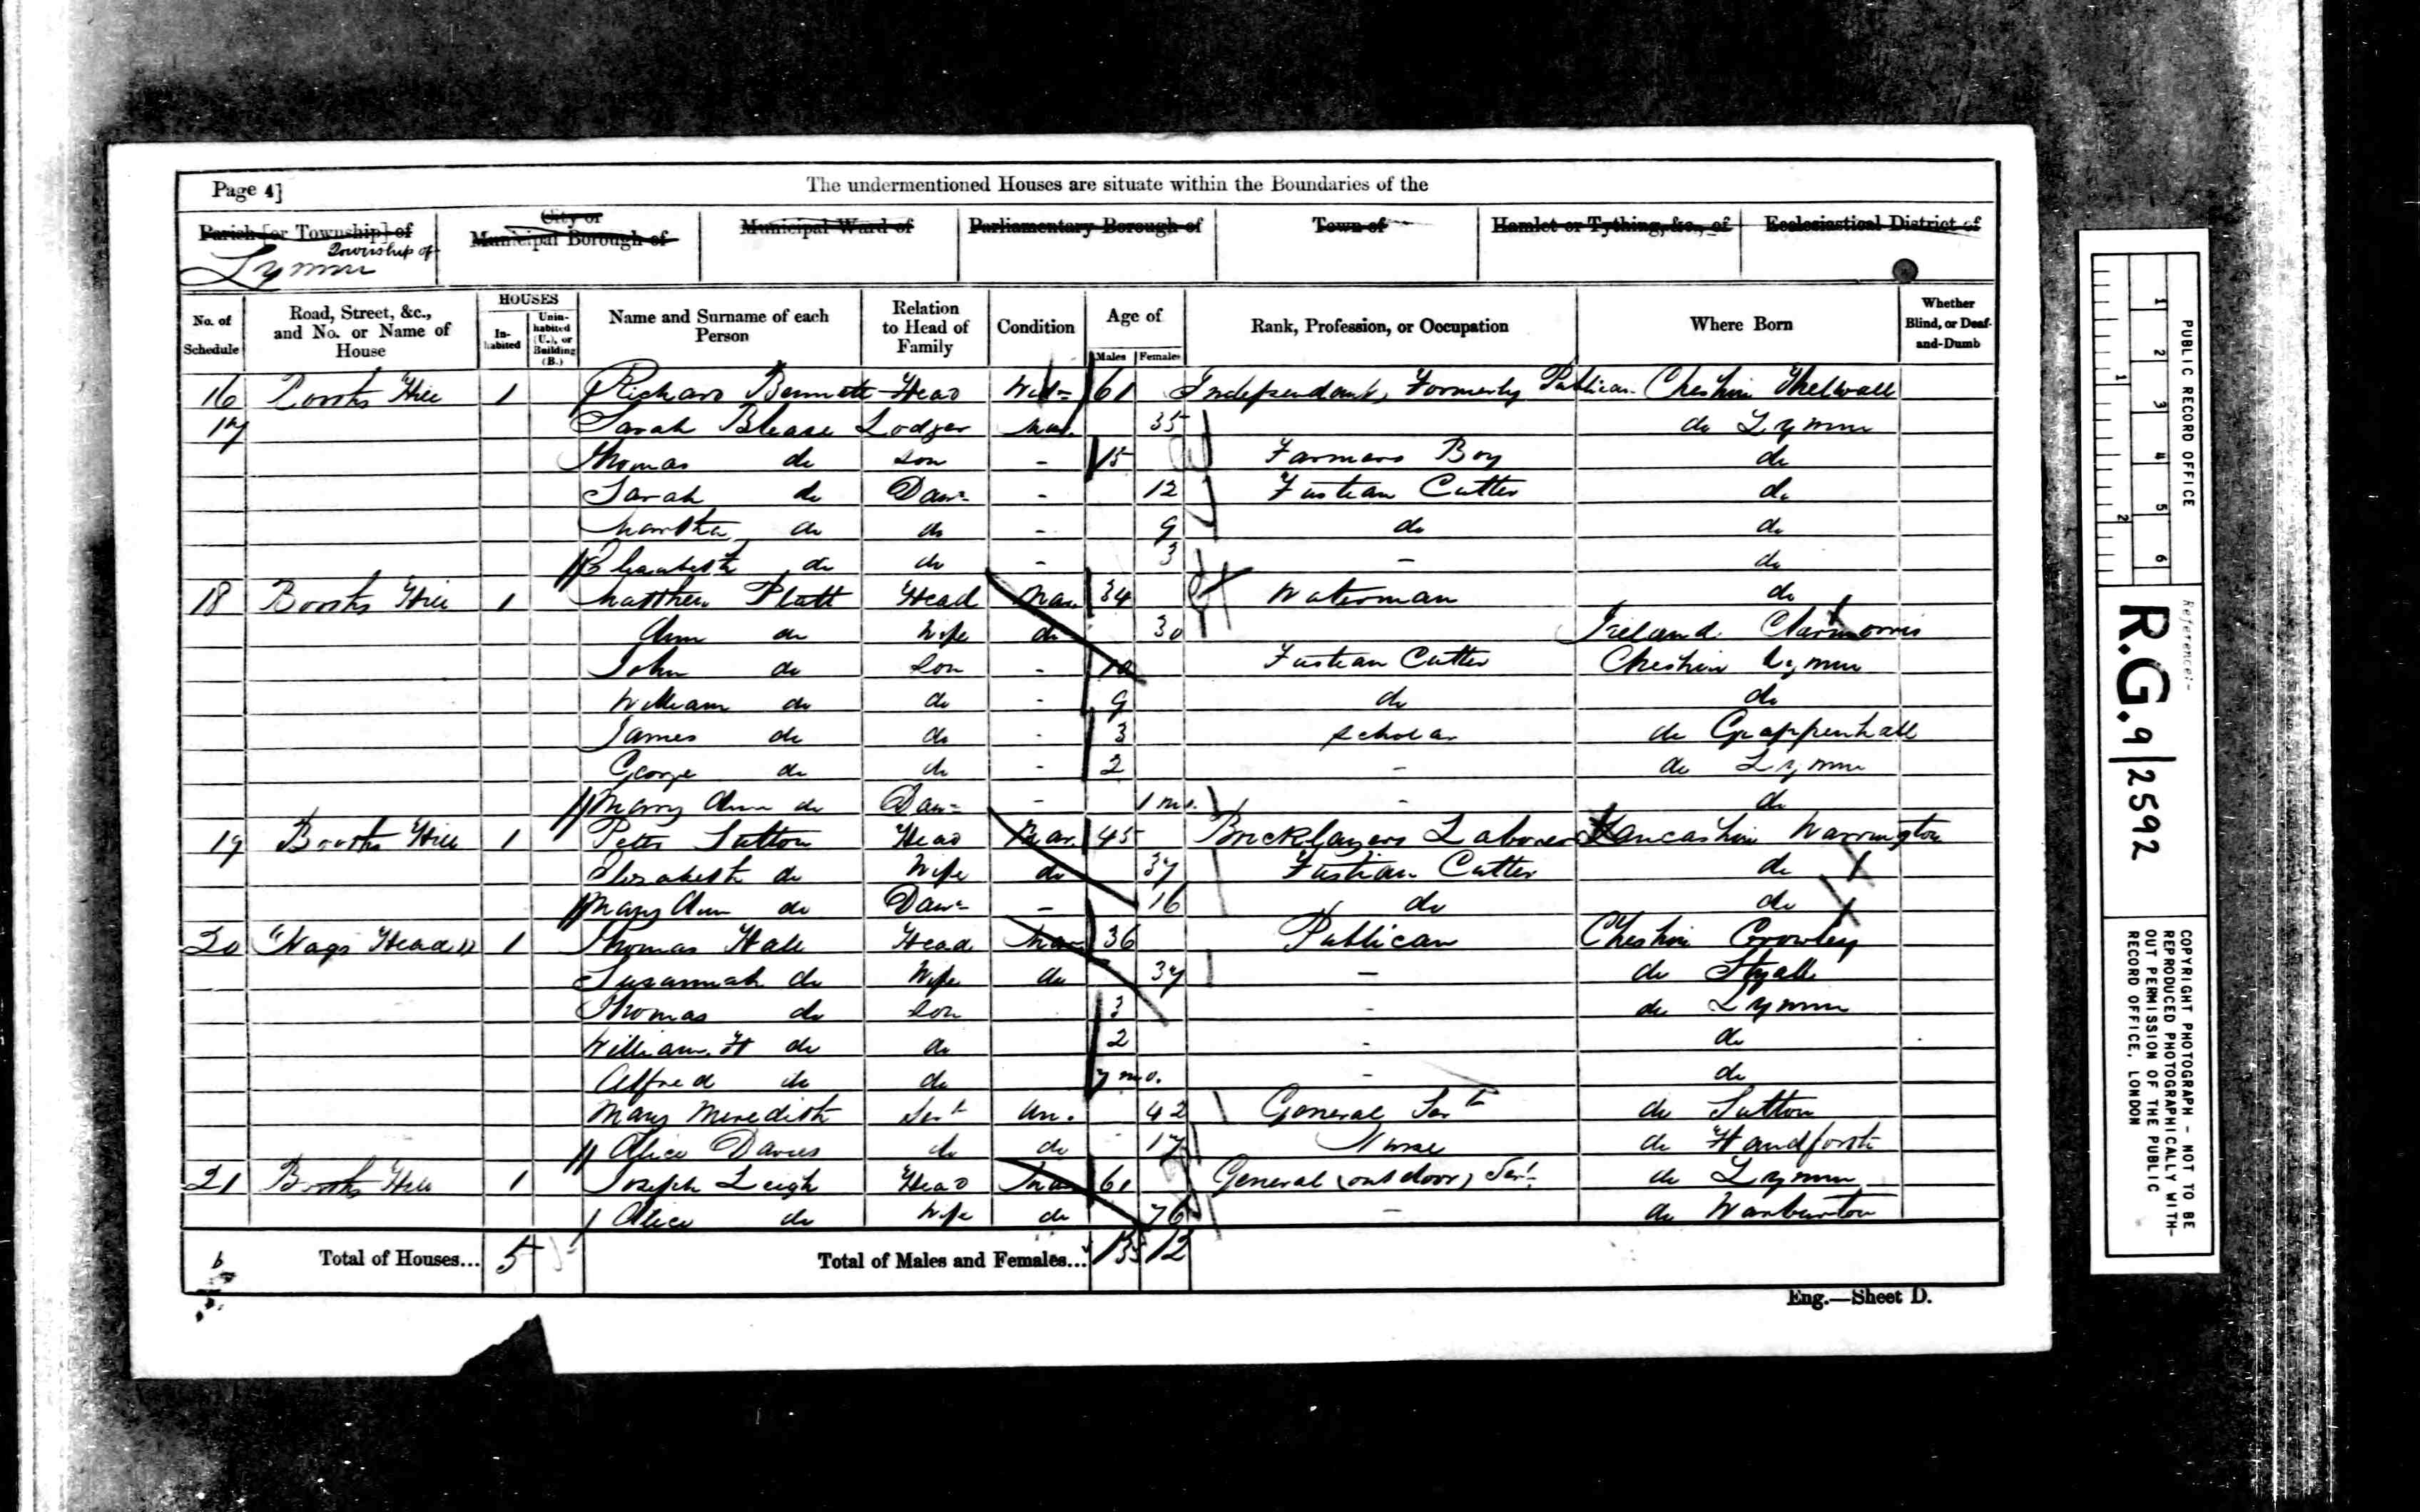 Page 4]
The undermentioned Houses are situate within the Boundaries of the
Parish [or Township] of
Township of
Lymm
City or
Municipal Borough of
Municipal Ward of
Parliamentary Borough of
Town of
Hamlet or Tything, &c., of
Ecclesiastical District of
No. of Schedule
Road, Street, &c., and No. or Name of House
HOUSES
In-habited
Unin-habited (U.), or Building (B.)
Name and Surname of each Person
Relation to Head of Family
Condition
Age of
Males Females
Rank, Profession, or Occupation
Where Born
Whether Blind, or Deaf-and-Dumb
16 Booths Hill 1 Richard Bennett Head Widr 61 Independant, Formerly Publican Cheshire Thelwall
17 Sarah Blease Lodger Mar. 35 do Lymm
Thomas do Son - 15 Farmers Boy do
Sarah do Daur - 12 Fustian Cutter do
Martha do do - 9 do do
Elizabeth do do - 3 - do
18 Booths Hill 1 Matthew Platt Head Mar 34 Waterman do
Ann do Wife do 30 Ireland Claremorris
John do Son - 10 Fustian Cutter Cheshire Lymm
William do do - 9 do do
James do do - 3 Scholar do Grappenhall
George do do - 2 - do Lymm
Mary Ann do Daur - 1 mo. - do
19 Booths Hill 1 Peter Sutton Head Mar. 45 Bricklayers Laborer Lancashire Warrington
Elizabeth do Wife do 37 Fustian Cutter do
Mary Ann do Daur - 16 do do
20 "Nags Head" 1 Thomas Hale Head Mar 36 Publican Cheshire Crowley
Susannah do Wife do 37 - do Styall
Thomas do Son 3 - do Lymm
William H do do 2 - do
Alfred do do 7 mo. - do
Mary Meredith Sert Un. 42 General Sert do Sutton
Alice Davies do do 17 Nurse do Handforth
21 Booths Hill 1 Joseph Leigh Head Mar 61 General (outdoor) Sert do Lymm
Alice do Wife do 76 - do Warburton
Total of Houses... 5
Total of Males and Females... 13 12
Eng.—Sheet D.
PUBLIC RECORD OFFICE
1 2 3 4 5 6
1 2
Reference:-
R.G. 9/2592
COPYRIGHT PHOTOGRAPH - NOT TO BE
REPRODUCED PHOTOGRAPHICALLY WITH-
OUT PERMISSION OF THE PUBLIC
RECORD OFFICE, LONDON